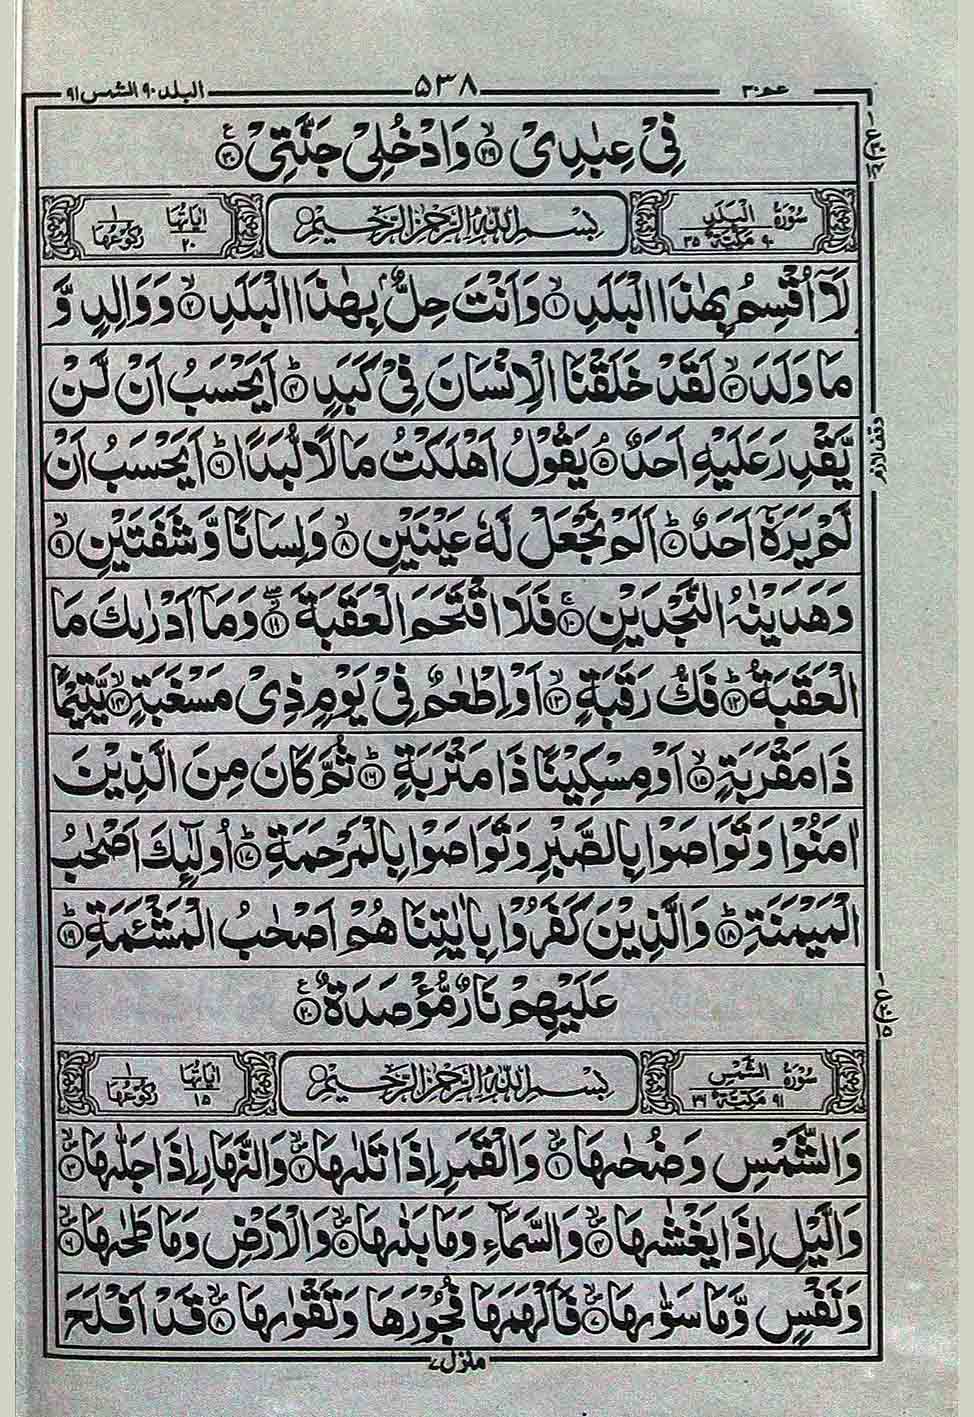 البلد ٩٠ الشمس ٩١
٥٣٨
عم ٣٠
فِیْ عِبٰدِیْ ۙ﴿۲۹﴾ وَادْخُلِیْ جَنَّتِیْ ﴿۳۰﴾ ع
سُوْرَةُ الْبَلَدِ ٩٠ مَكِّيَّةٌ ٣٥
بِسْمِ اللّٰهِ الرَّحْمٰنِ الرَّحِيْمِ
اٰیَاتُهَا ٢٠ رُكُوْعُهَا ١
لَاۤ اُقْسِمُ بِهٰذَا الْبَلَدِ ۙ﴿۱﴾ وَاَنْتَ حِلٌّۢ بِهٰذَا الْبَلَدِ ۙ﴿۲﴾ وَوَالِدٍ وَّ
مَا وَلَدَ ۙ﴿۳﴾ لَقَدْ خَلَقْنَا الْاِنْسَانَ فِیْ كَبَدٍ ؕ﴿۴﴾ اَیَحْسَبُ اَنْ لَّنْ
یَّقْدِرَ عَلَیْهِ اَحَدٌ ۘ﴿۵﴾ یَقُوْلُ اَهْلَكْتُ مَالًا لُّبَدًا ؕ﴿۶﴾ اَیَحْسَبُ اَنْ
لَّمْ یَرَهٗۤ اَحَدٌ ؕ﴿۷﴾ اَلَمْ نَجْعَلْ لَّهٗ عَیْنَیْنِ ۙ﴿۸﴾ وَلِسَانًا وَّشَفَتَیْنِ ۙ﴿۹﴾
وَهَدَیْنٰهُ النَّجْدَیْنِ ۚ﴿۱۰﴾ فَلَا اقْتَحَمَ الْعَقَبَةَ ۖ﴿۱۱﴾ وَمَاۤ اَدْرٰىكَ مَا
الْعَقَبَةُ ؕ﴿۱۲﴾ فَكُّ رَقَبَةٍ ۙ﴿۱۳﴾ اَوْ اِطْعٰمٌ فِیْ یَوْمٍ ذِیْ مَسْغَبَةٍ ۙ﴿۱۴﴾ یَّتِیْمًا
ذَا مَقْرَبَةٍ ۙ﴿۱۵﴾ اَوْ مِسْكِیْنًا ذَا مَتْرَبَةٍ ؕ﴿۱۶﴾ ثُمَّ كَانَ مِنَ الَّذِیْنَ
اٰمَنُوْا وَتَوَاصَوْا بِالصَّبْرِ وَتَوَاصَوْا بِالْمَرْحَمَةِ ؕ﴿۱۷﴾ اُولٰٓىِٕكَ اَصْحٰبُ
الْمَیْمَنَةِ ؕ﴿۱۸﴾ وَالَّذِیْنَ كَفَرُوْا بِاٰیٰتِنَا هُمْ اَصْحٰبُ الْمَشْـَٔمَةِ ؕ﴿۱۹﴾
عَلَیْهِمْ نَارٌ مُّؤْصَدَةٌ ﴿۲۰﴾ ع
سُوْرَةُ الشَّمْسِ ٩١ مَكِّيَّةٌ ٢٦
بِسْمِ اللّٰهِ الرَّحْمٰنِ الرَّحِيْمِ
اٰیَاتُهَا ١٥ رُكُوْعُهَا ١
وَالشَّمْسِ وَضُحٰىهَا ۙ﴿۱﴾ وَالْقَمَرِ اِذَا تَلٰىهَا ۙ﴿۲﴾ وَالنَّهَارِ اِذَا جَلّٰىهَا ۙ﴿۳﴾
وَالَّیْلِ اِذَا یَغْشٰىهَا ۙ﴿۴﴾ وَالسَّمَآءِ وَمَا بَنٰىهَا ۙ﴿۵﴾ وَالْاَرْضِ وَمَا طَحٰىهَا ۙ﴿۶﴾
وَنَفْسٍ وَّمَا سَوّٰىهَا ۙ﴿۷﴾ فَاَلْهَمَهَا فُجُوْرَهَا وَتَقْوٰىهَا ۙ﴿۸﴾ قَدْ اَفْلَحَ
منزل ٧
وقف لازم